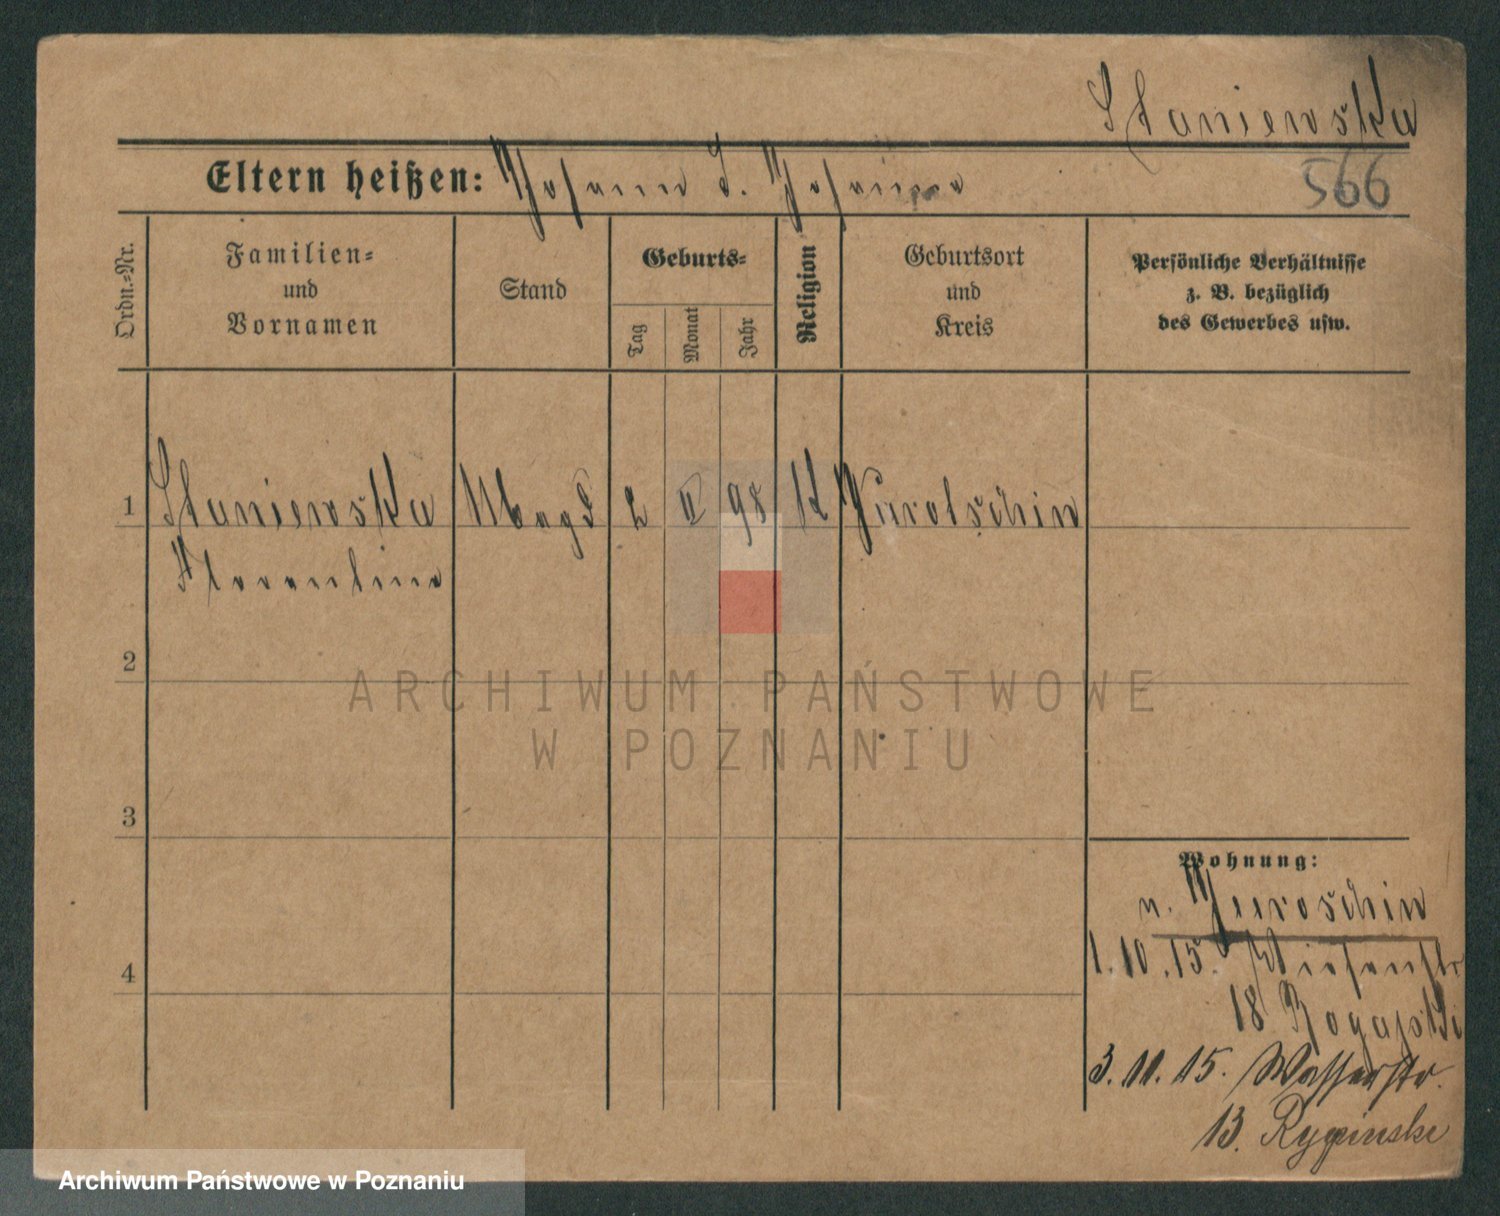 Staniewska
Eltern heißen: Johann J. Johanna
566
Ordn.-Nr.
Familien-
und
Vornamen
Stand
Geburts-
Tag
Monat
Jahr
Religion
Geburtsort
und
Kreis
Persönliche Verhältnisse
z. B. bezüglich
des Gewerbes usw.
1 Staniewska Magd 2 II 98 K Jarotschin
Florentine
2
3
4
ARCHIWUM PAŃSTWOWE
W POZNANIU
Wohnung:
n. Jaroschin
1.10.15. Wiesenstr
18
3.11.15. Wasserstr.
13. Rypinski
Archiwum Państwowe w Poznaniu